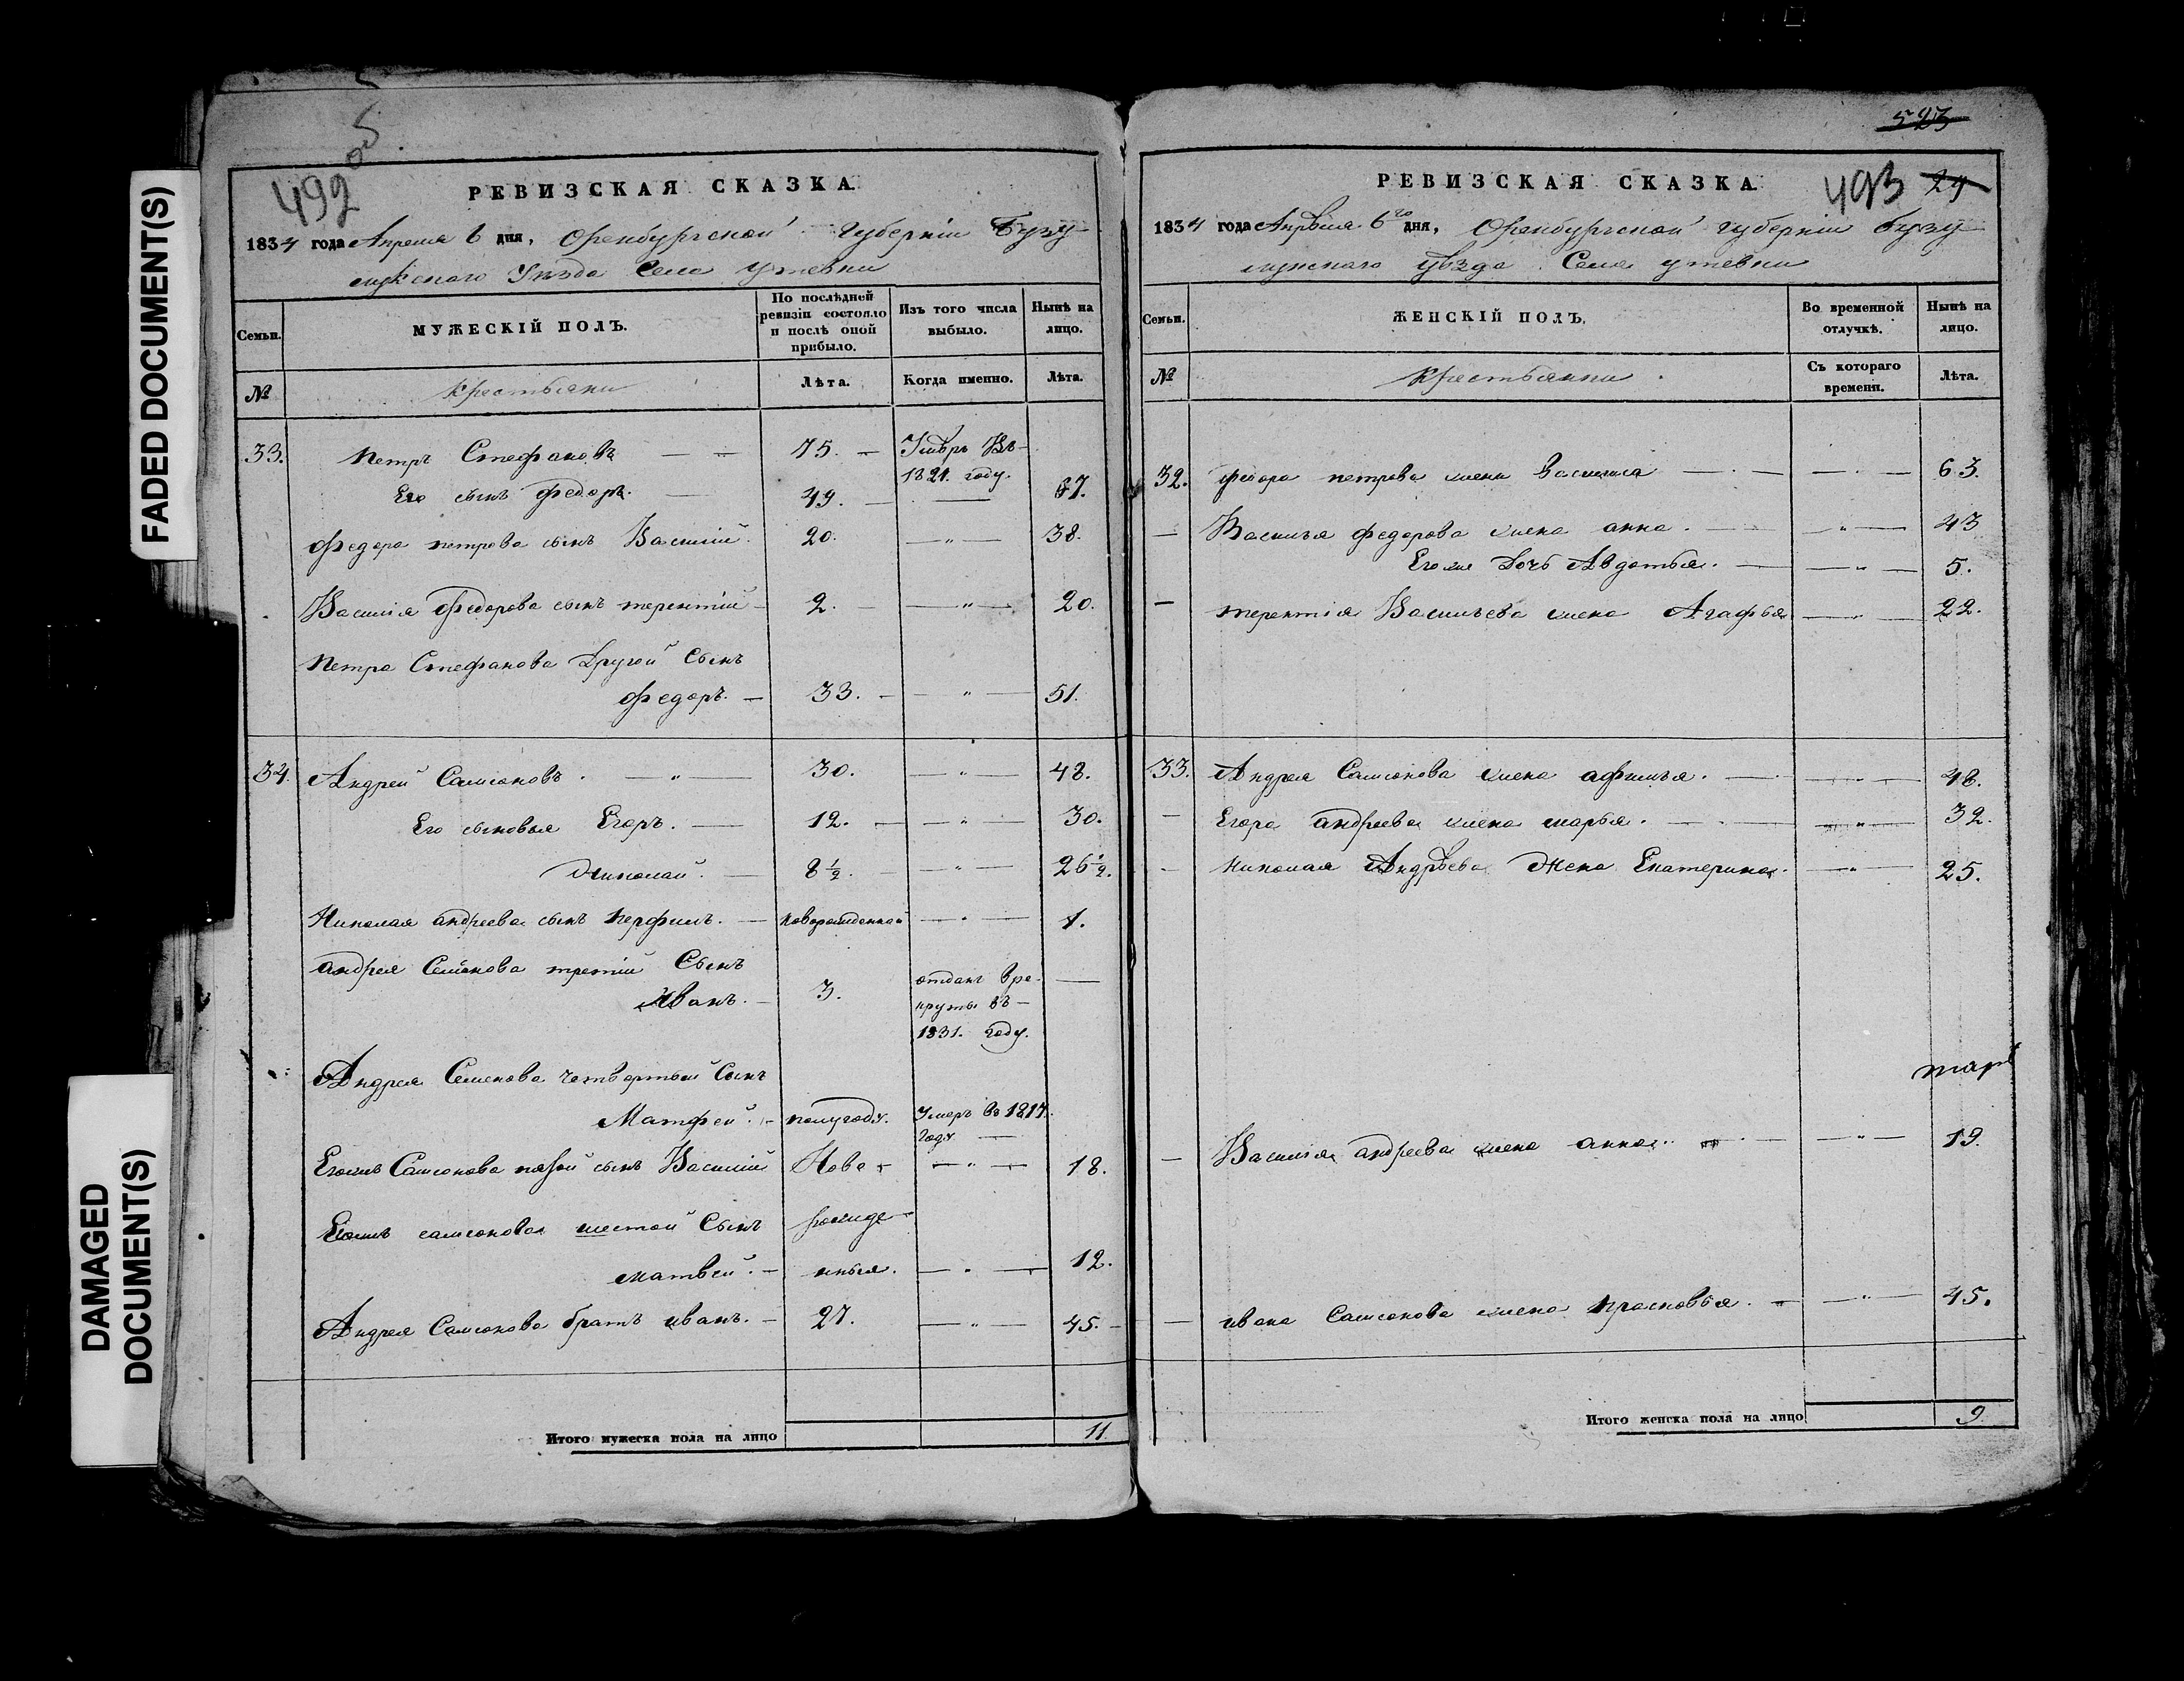 FADED DOCUMENT(S)
DAMAGED
DOCUMENT(S)
492 об.
РЕВИЗСКАЯ СКАЗКА.
1834 года Апреля 6 дня, Оренбургской Губерніи Бузу
лукскаго Уѣзда Села Утевки
Семьи.
МУЖЕСКІЙ ПОЛЪ.
По послѣдней
ревизіи состояло
и послѣ оной
прибыло.
Изъ того числа
выбыло.
Нынѣ на
лицо.
№
Крестьяни
Лѣта.
Когда именно.
Лѣта.
33. Петръ Стефановъ 75. Умѣръ Въ
1821. году.
Его сынъ Федоръ. 49. 67.
Федора петрова сынъ Василій. 20. 38.
Василія Федорова сынъ терентій 2. 20.
Петра Стефанова Другой Сынъ
Федоръ. 33. 51.
34. Андрей Самсоновъ. 30. 48.
Его сыновья Егоръ. 12. 30.
Николай. 8 1/2. 26 1/2.
Николая андреева сынъ Перфилъ. новорожденной 1.
андрея Семенова третій Сынъ
Иванъ. 3. отданъ вре-
круты въ
1831. году.
Андрея Семенова четвертый Сынъ
Матфей. полугоду. Умеръ во 1817.
году
Самсонова пятой сынъ Василій Ново 18.
самсонова шестой Сынъ рожде
матвей. нныя. 12.
Андрея Самсонова братъ иванъ. 27. 45.
Итого мужеска пола на лицо 11
523
493 24
РЕВИЗСКАЯ СКАЗКА.
1834 года Апрѣля 6го дня, Оренбургской губерніи бузу
лукскаго уѣзда Села утевки
Семьи.
ЖЕНСКІЙ ПОЛЪ.
Во временной
отлучкѣ.
Нынѣ на
лицо.
№
Крестьянки
Съ котораго
времени.
Лѣта.
32. федора петрова жена Василиса 63.
Василья федорова жена анна. 43
Его же Дочь Авдотья. 5.
терентія Васильева жена Агафья 22.
33. Андрея Самсонова жена афимья. 48.
Егора андреева жена марья. 32.
Николая Андрѣева Жена Екатерина. 25.
Василія андреева жена анна. 19.
ивана Самсонова жена прасковья. 45.
Итого женска пола на лицо 9